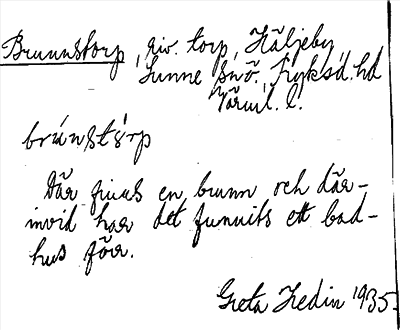 Brunnstorp, riv. torp, Häljeby,
Sunne snö. Fryksd. hd
Värml. l.
brúnstǒrp
Där finns en brunn och där-
invid har det funnits ett bad-
hus förr.
Greta Hedin 1935.